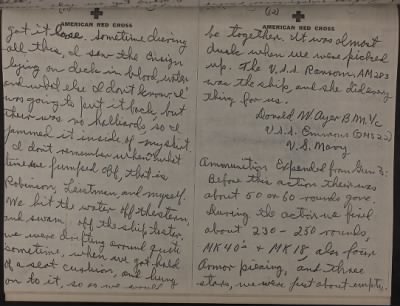 AMERICAN RED CROSS
got it loose, sometime during
all this, I saw the Ensign
lying on deck in blood, water
and what else I don't know. I
was going to put it back, but
there was no halliards, so I
jammed it inside of my shirt.
I don't remember when what
time we jumped off, that is
Robinson, Lieutman, and myself.
We hit the water off the stern,
and swam off the ship, later
we were drifting around quite
sometime, when we got hold
of a seat cushion, and hung
on to it, so as we would
AMERICAN RED CROSS
be together. It was almost
dusk when we were picked
up. The U.S.S. Ransom, AM 283
was the ship, and she did every
thing for us.
Donald W. Ayer B.M. 1/c
U.S.S. Emmons (DMS 22)
U.S. Navy
Ammunition Expended from Gun 3:
Before this action there was
about 50 or 60 rounds gone.
During the action we fired
about 230 - 250 rounds,
MK 40's + MK 18, also four
Armor piecing, and three
stars, we were just about empty.